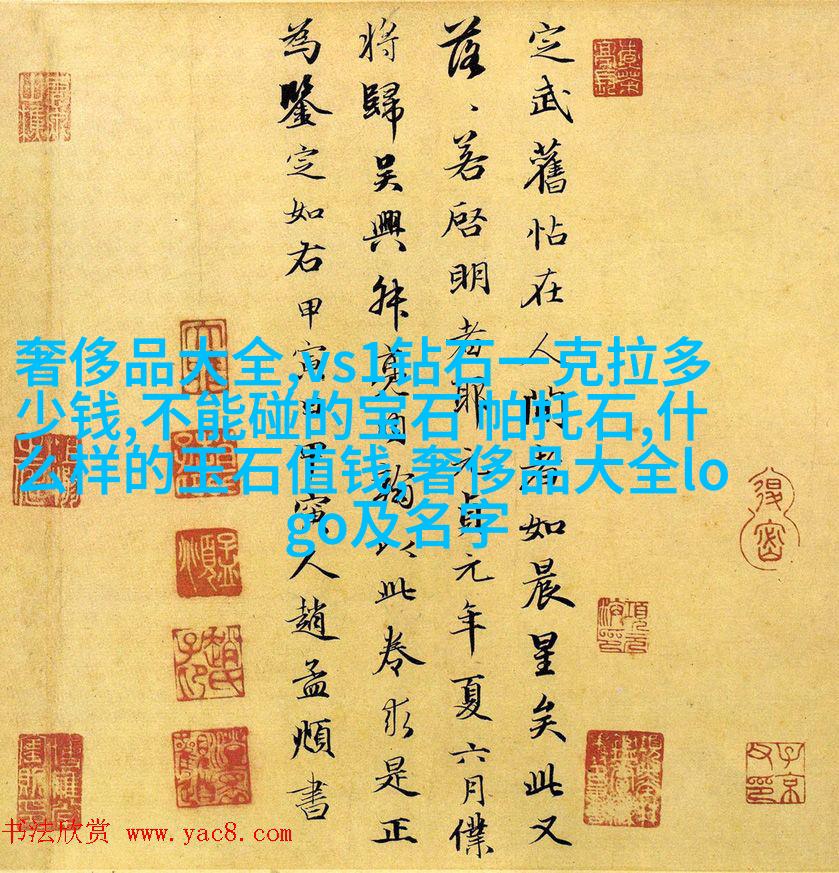 定武舊帖在人間者如晨星矣此又
落、若啓明者耶元貞元年夏六月僕
将歸吴興叔亮内翰以此卷求是正
為鑒定如右甲寅日甲寅人趙孟頫書
奢侈品大全,vs1钻石一克拉多
少钱,不能碰的宝石 帕托石,什
么样的玉石值钱,奢侈品大全lo
go及名字
书法欣赏 www.yac8.com